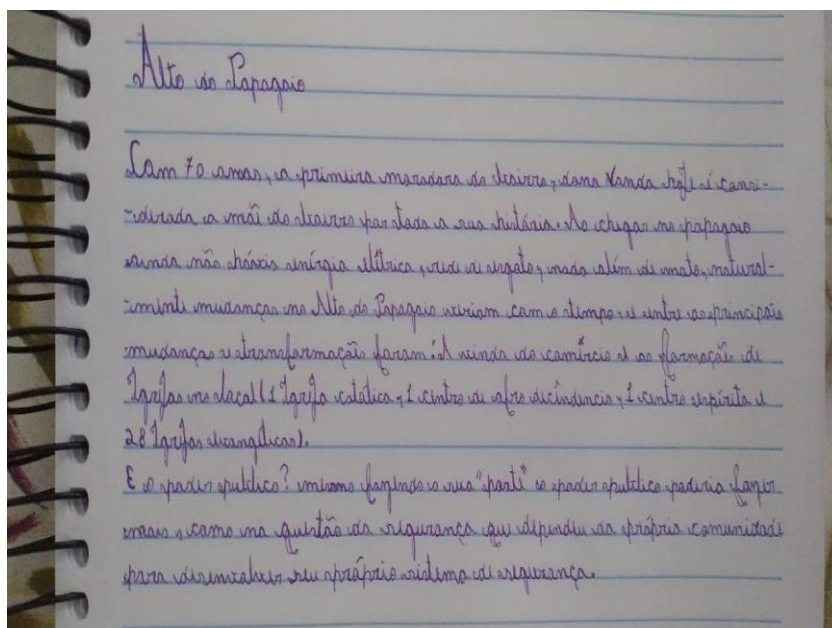 Alto do Papagaio
Com 70 anos, a primeira moradora do bairro, dona Vanda hoje é consi-
-derada a mãe do bairro por toda a sua história. Ao chegar no papagaio
ainda não hávia enérgia elétrica, rede de esgoto, nada além de mato, natural-
-mente mudanças no Alto do Papagaio viriam com o tempo e entre as principais
mudanças e transformação foram: A vinda do comércio e as formação de
Igrejas no local (1 Igreja católica, 1 centro de afro decêndencia, 1 centro espírita e
28 Igrejas evangélicas).
E o poder publico? mesmo fazendo a sua "parte" o poder publico poderia fazer
mais, como na questão da segurança que dependeu da própria comunidade
para desenvolver seu próprio sistema de segurança.